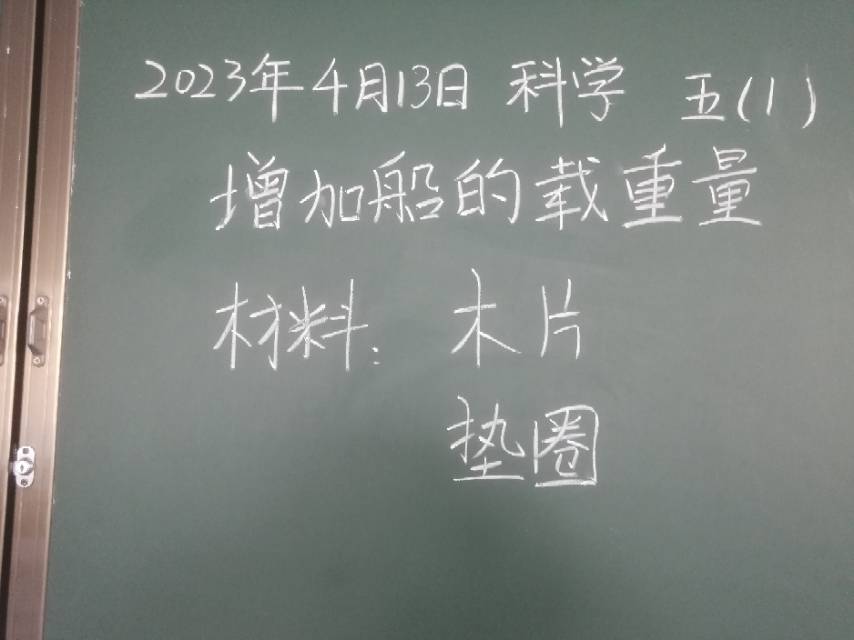 2023年4月13日 科学 五(1)
增加船的载重量
材料: 木片
垫圈